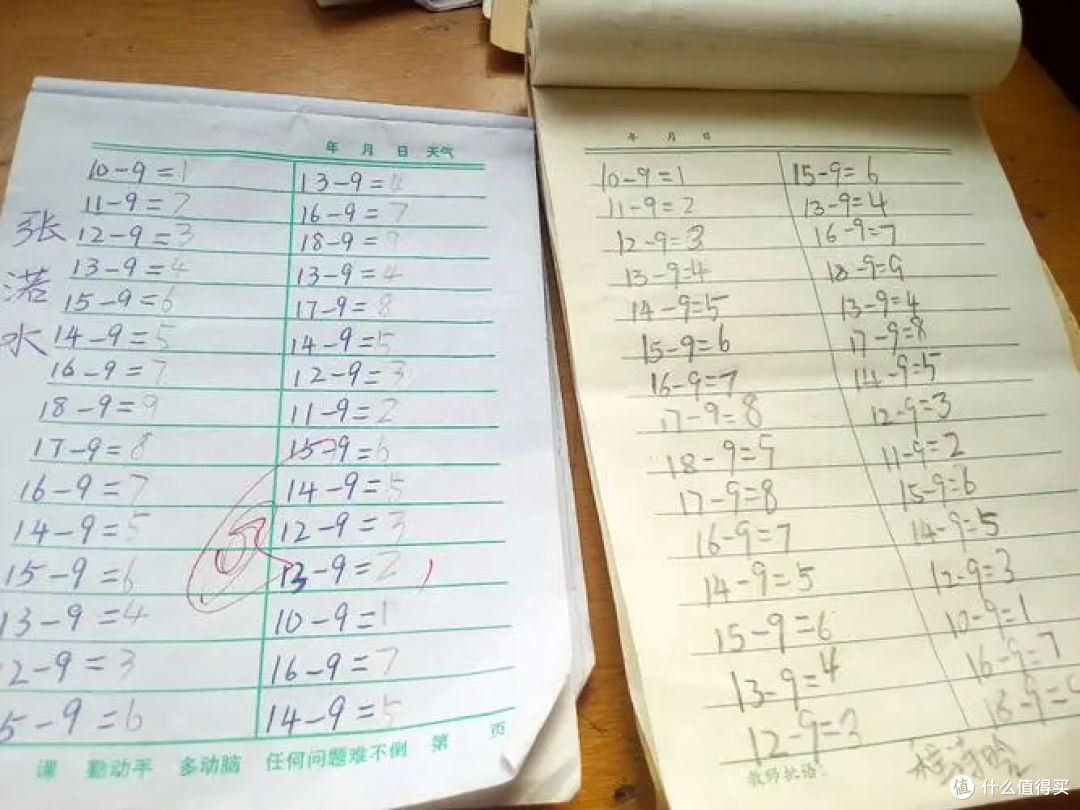 年 月 日 天气
张滢水
10-9=1
11-9=2
12-9=3
13-9=4
15-9=6
14-9=5
16-9=7
18-9=9
17-9=8
16-9=7
14-9=5
15-9=6
13-9=4
12-9=3
5-9=6
13-9=4
16-9=7
18-9=9
13-9=4
17-9=8
14-9=5
12-9=3
11-9=2
15-9=6
14-9=5
12-9=3
13-9=2
10-9=1
16-9=7
14-9=5
课 勤动手 多动脑 任何问题难不倒 第 页
年 月 日
10-9=1
11-9=2
12-9=3
13-9=4
14-9=5
15-9=6
16-9=7
17-9=8
18-9=9
17-9=8
16-9=7
14-9=5
15-9=6
13-9=4
12-9=3
15-9=6
13-9=4
16-9=7
18-9=9
13-9=4
17-9=8
14-9=5
12-9=3
11-9=2
15-9=6
14-9=5
12-9=3
10-9=1
16-9=7
18-9=9
教师批语:
值 什么值得买